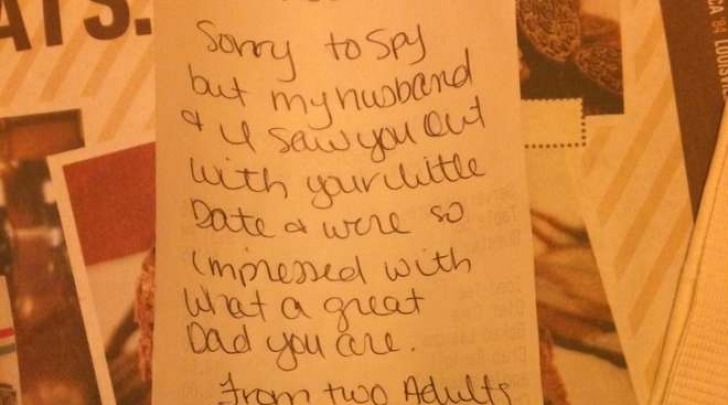 ATS.
Sorry to Spy
but my husband
& I saw you Out
with your little
Date & were so
impressed with
what a great
Dad you are.
From two Adults